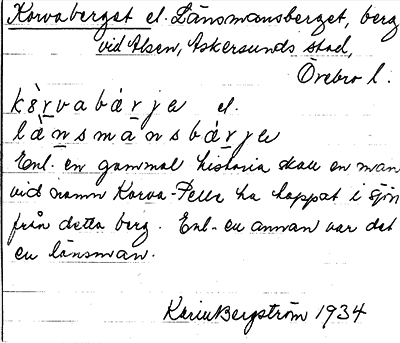 Korvaberget el. Länsmansberget, berg
vid Alsen, Askersunds stad,
Örebro l.
kèrvabárje el.
lä̀nsmànsbárje
Enl. en gammal historia skall en man
vid namn Korva-Pelle ha hoppat i sjön
från detta berg. Enl. en annan var det
en länsman.
Karin Bergström 1934